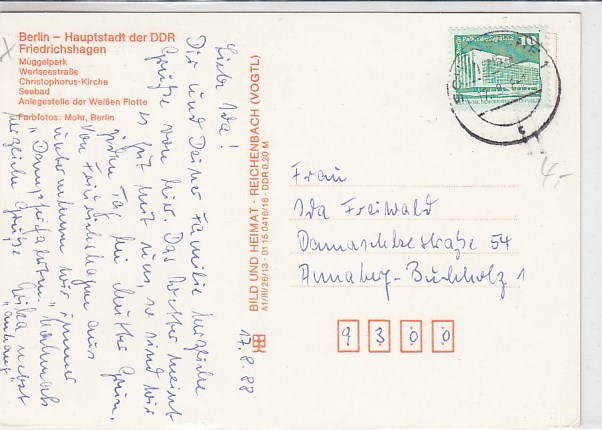 Berlin – Hauptstadt der DDR
Friedrichshagen
Müggelpark
Werlseestraße
Christophorus-Kirche
Seebad
Anlegestelle der Weißen Flotte
Farbfotos: Mohr, Berlin
Liebe Ida!
Dir und Deiner Familie herzliche
Grüße von hier. Das Wetter meint
es gut mit uns, so sind wir
jeden Tag bei Mutter Grün.
Von Friedrichshagen aus
unternahmen wir immer
"Dampferfahrten". Nochmals
herzliche Grüße Erika nebst
"Anhang"
17.8.88
BILD UND HEIMAT · REICHENBACH (VOGTL)
A1/III/26/13 · 01 15 04 16/16 · DDR 0,20 M
10
Frau
Ida Freiwald
Damaschkestraße 54
Annaberg-Buchholz 1
9300
4,-